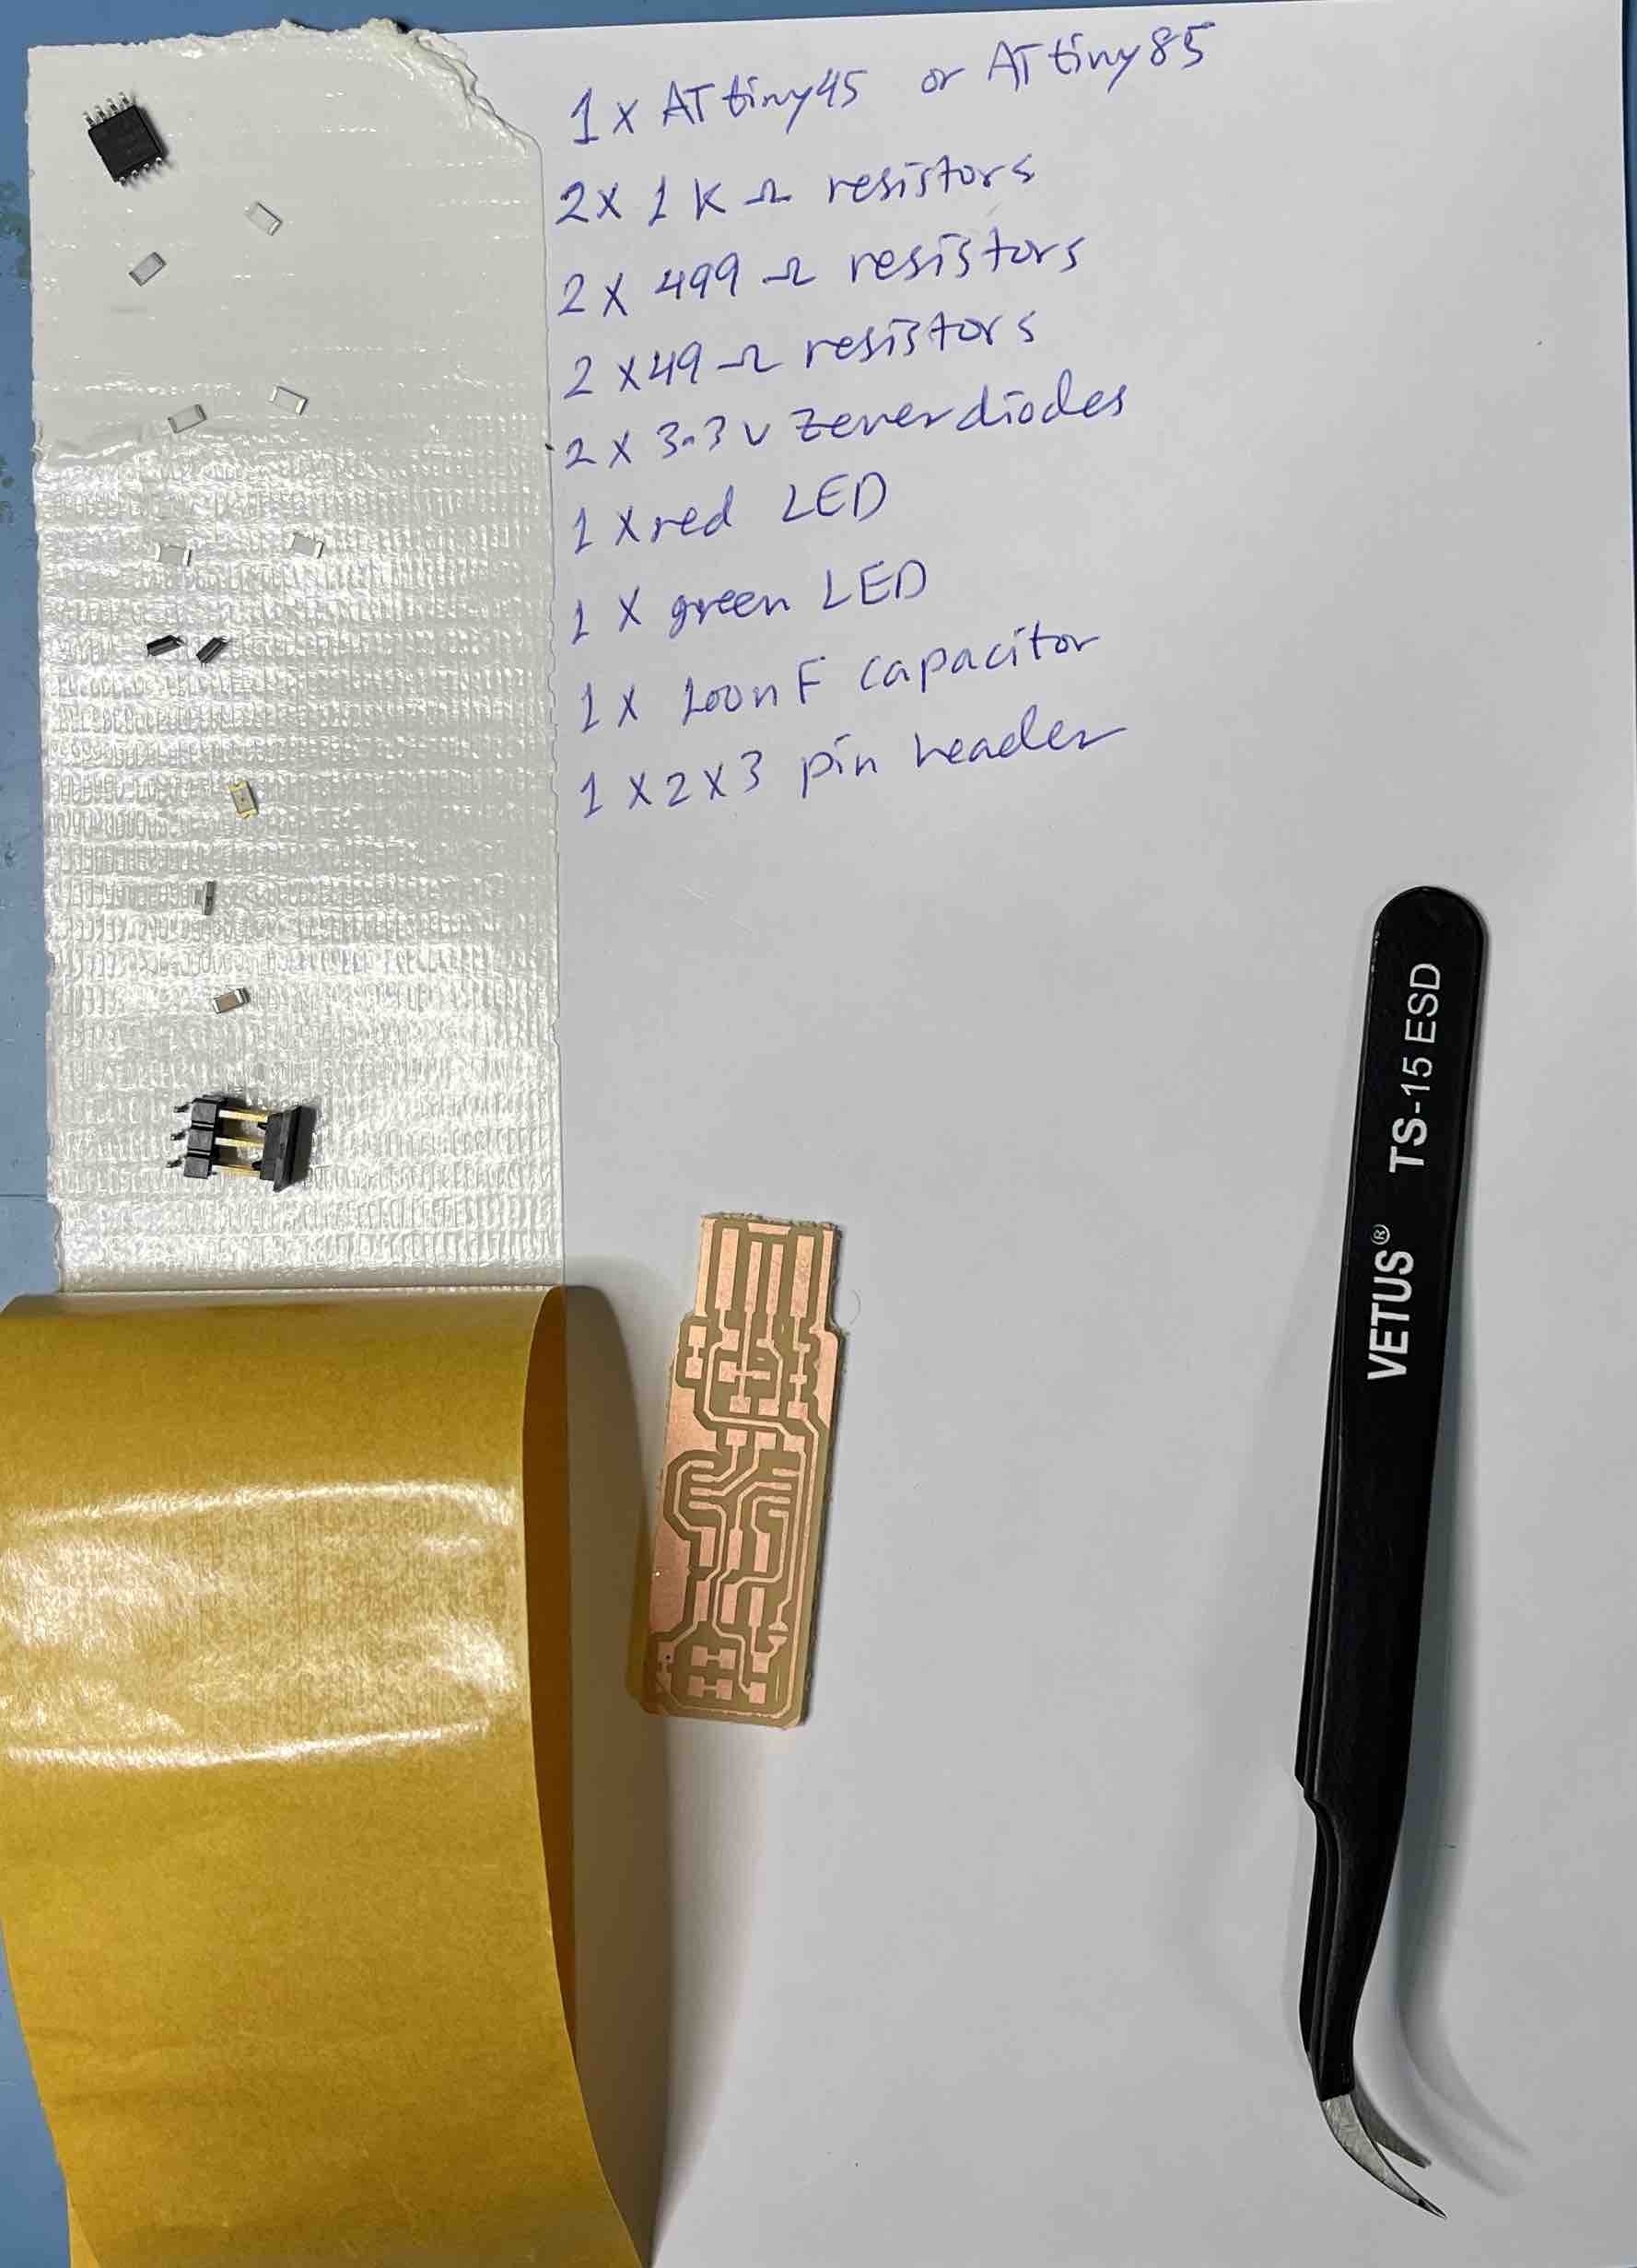 1 x ATtiny45 or ATtiny85
2 x 1 K Ω resistors
2 x 499 Ω resistors
2 x 49 Ω resistors
2 x 3.3 v Zener diodes
1 x red LED
1 x green LED
1 x 100nF capacitor
1 x 2 x 3 pin header
VETUS® TS-15 ESD